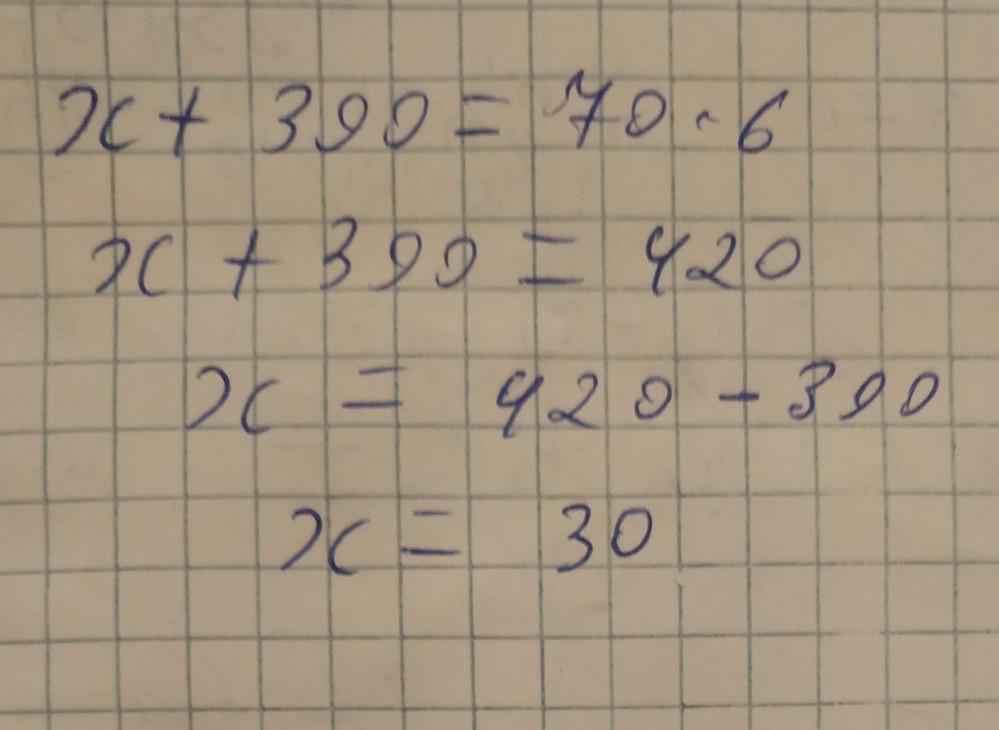 x + 390 = 70 · 6
x + 390 = 420
x = 420 - 390
x = 30